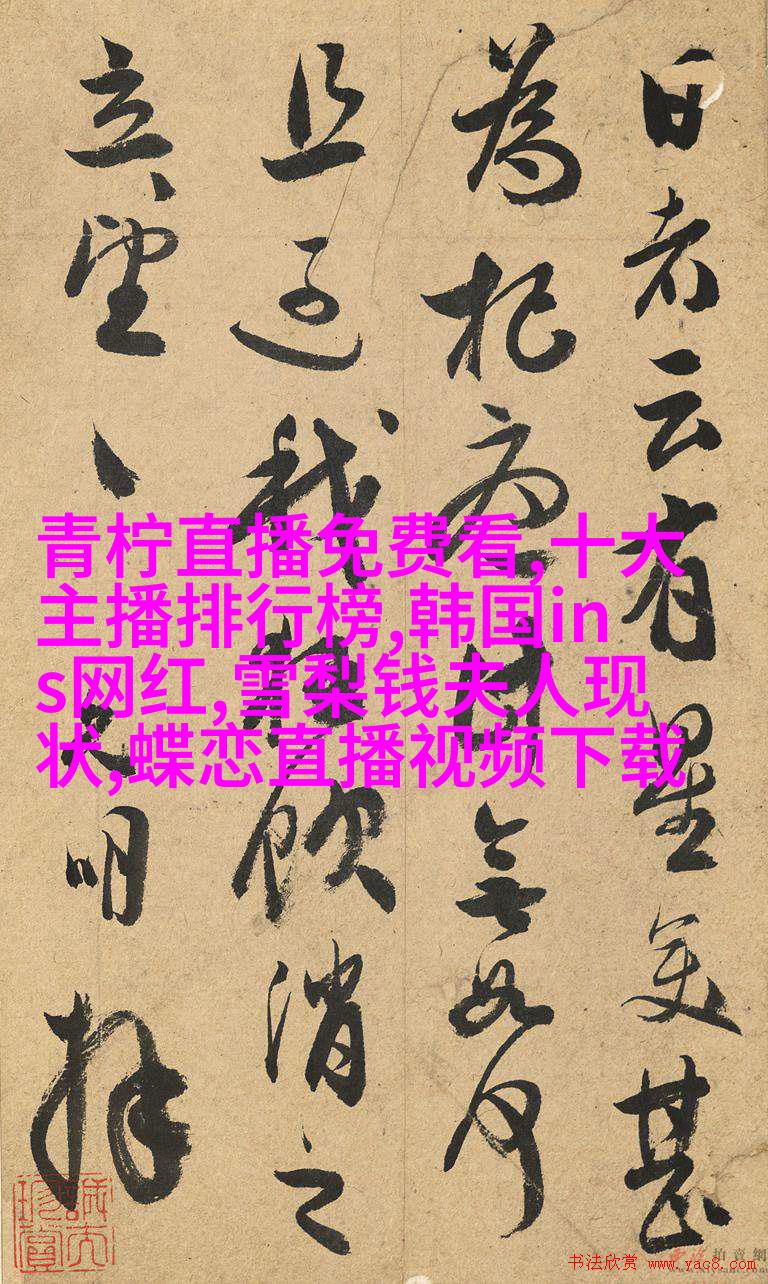 日者云有星甚
為無如何
且過我飲消之
立望、、明拜
青柠直播免费看,十大
主播排行榜,韩国in
s网红,雪梨钱夫人现
状,蝶恋直播视频下载
书法欣赏 www.yac8.com